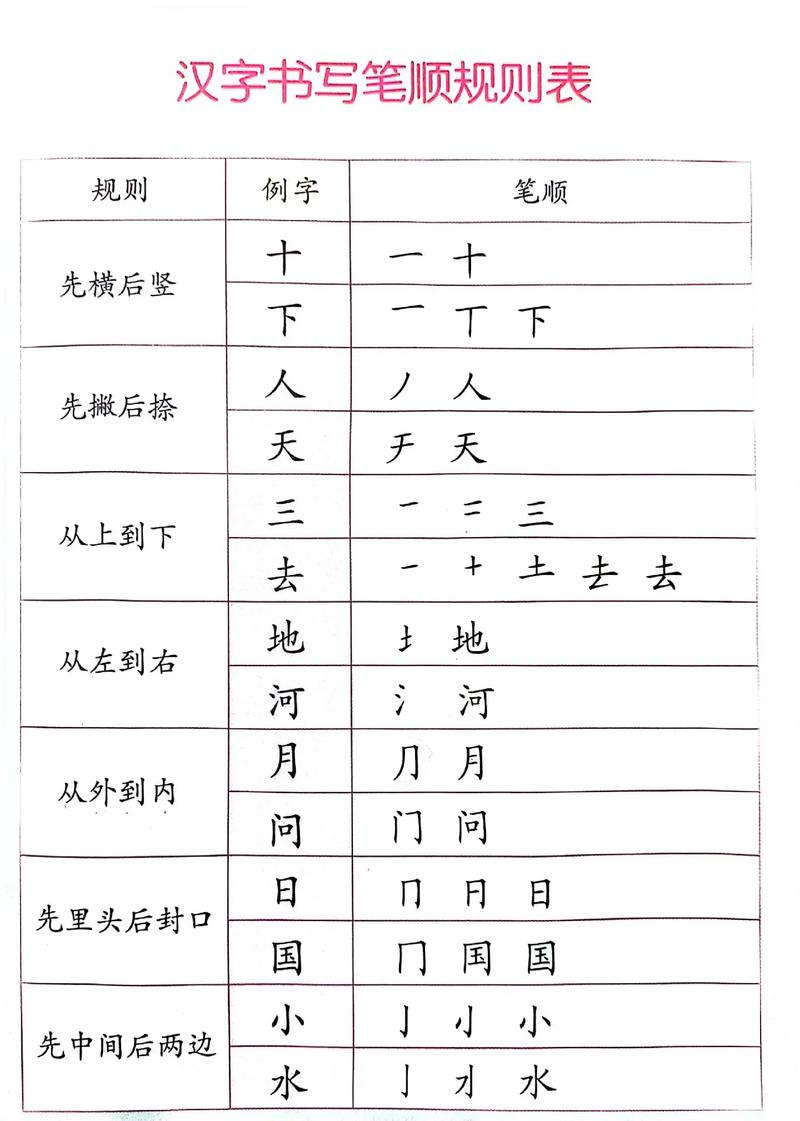 汉字书写笔顺规则表
规则 例字 笔顺
先横后竖
十 一 十
下 一 丅 下
先撇后捺
人 丿 人
天 天
从上到下
三 一 二 三
去 一 十 土 去
从左到右
地 地
河 氵 河
从外到内
月 ⺆ 月
问 门 问
先里头后封口
日 冂 日
国 冂 国
先中间后两边
小 亅 小
水 亅 水